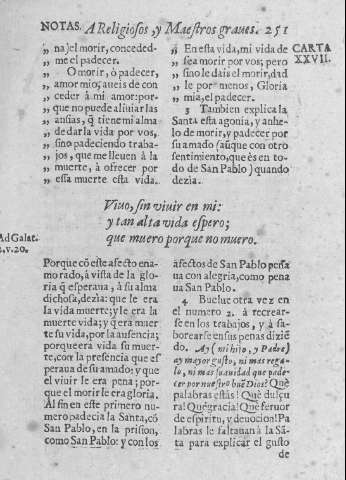 NOTAS. A Religiosos, y Maestros graues. 251
„ na) el morir, conceded-
„ me el padecer.
„ O morir, ò padecer,
„ amor mio, aueis de con
„ ceder à mi amor: por-
„ que no puede aliuiar las
„ ansias, q̃ tiene mi alma
„ de dar la vida por vos,
„ sino padeciendo traba-
„ jos, que me lleuen à la
„ muerte, à ofrecer por
„ essa muerte esta vida.
„ En esta vida, mi vida de
„ sea morir por vos; pero
„ sino le dais el morir, dad
„ le por menos, Gloria
„ mia, el padecer.
CARTA
XXVII.
3 Tambien explica la
Santa esta agonia, y anhe-
lo de morir, y padecer por
su amado (aũque con otro
sentimiento, que ès en to-
do de San Pablo) quando
dezia.
Viuo, sin viuir en mi:
y tan alta vida espero;
que muero porque no muero.
Ad Galat.
2. v. 20.
Porque cõ este afecto ena-
morado, à vista de la glo-
ria q̃ esperaua, à su alma
dichosa, dezia: que le era
la vida muerte; y le era la
muerte vida; y q̃ era muer
te su vida, por la ausencia;
porque era vida su muer-
te, con la presencia que es-
peraua de su amado; y que
el viuir le era pena; por-
que el morir le era gloria.
Al fin en este primero nu-
mero padecia la Santa, cõ
San Pablo, en la prision,
como San Pablo: y con los
afectos de San Pablo pena
ua con alegria, como pena
ua San Pablo.
4 Buelue otra vez en
el numero 2. à recrear-
se en los trabajos, y à sa-
borearse en sus penas dizie
do. Ay (mi hijo, y Padre)
ay mayor gusto, ni mas rega-
lo, ni mas suauidad que pade-
cer por nuestro buẽ Dios? Què
palabras estas! Què dulçu
ra! Què gracia! Què feruor
de espiritu, y deuocion! Pa
labras le faltauan à la Sã-
ta para explicar el gusto
de